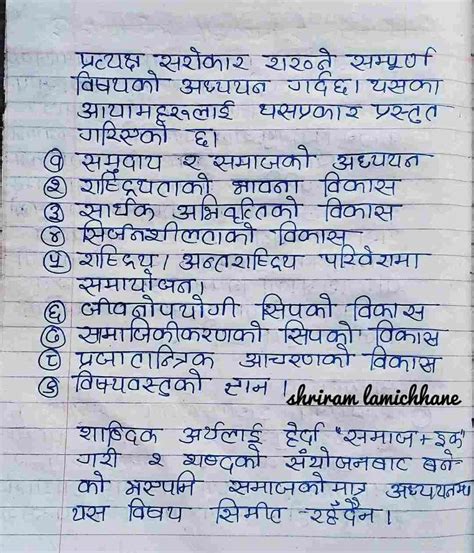 प्रत्यक्ष सरोकार राख्ने सम्पूर्ण
विषयको अध्ययन गर्दछ। यसका
आयामहरुलाई यसप्रकार प्रस्तुत
गरिएको छ।
१ समुदाय र समाजको अध्ययन
२ राष्ट्रियताको भावना विकास
३ सार्थक अभिवृत्तिको विकास
४ सिर्जनशीलताको विकास
५ राष्ट्रिय। अन्तराष्ट्रिय परिवेशमा
समायोजन।
६ जीवनोपयोगी सिपको विकास
७ समाजिकीकरणको सिपको विकास
८ प्रजातान्त्रिक आचरणको विकास
९ विषयवस्तुको ज्ञान।
shriram lamichhane
शाब्दिक अर्थलाई हेर्दा "समाज + इक"
गरी २ शब्दको संयोजनबाट बने
को भएपनि समाजको मात्र अध्ययनमा
यस विषय सिमीत रहँदैन।